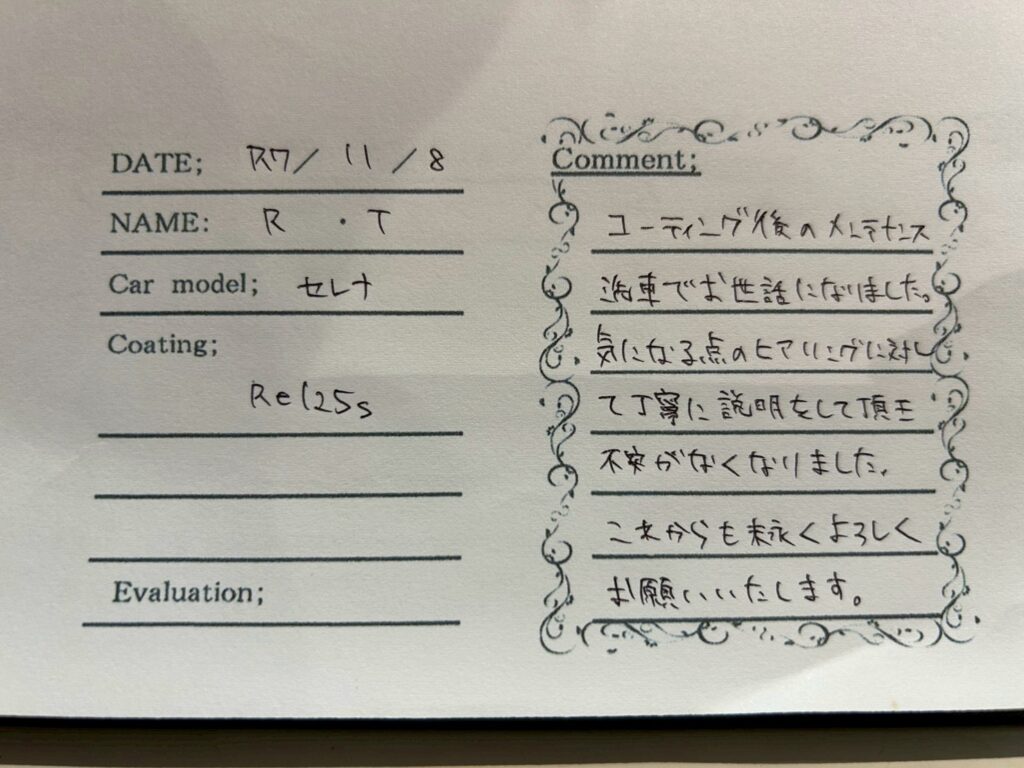 DATE; R7/ 11 / 8
NAME: R ・ T
Car model; セレナ
Coating;
Re125s
Evaluation;
Comment;
コーティング後のメンテナンス
洗車でお世話になりました。
気になる点のヒアリングに対し
て丁寧に説明をして頂き
不安がなくなりました。
これからも末永くよろしく
お願いいたします。